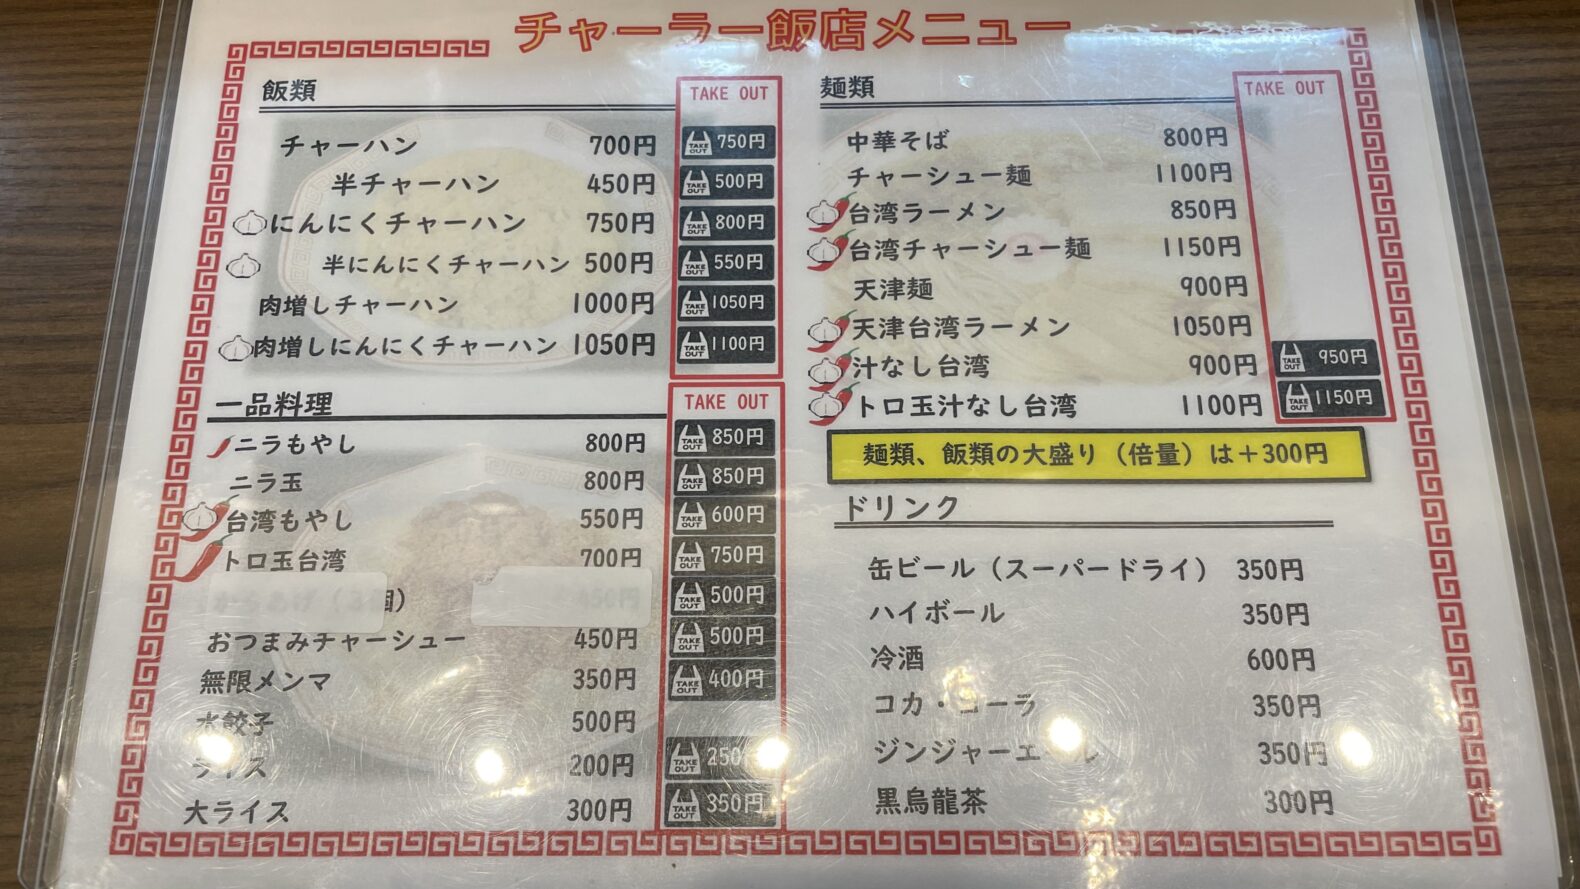 チャーラー飯店メニュー
飯類
TAKE OUT
チャーハン 700円 TAKE OUT 750円
半チャーハン 450円 TAKE OUT 500円
にんにくチャーハン 750円 TAKE OUT 800円
半にんにくチャーハン 500円 TAKE OUT 550円
肉増しチャーハン 1000円 TAKE OUT 1050円
肉増しにんにくチャーハン 1050円 TAKE OUT 1100円
一品料理
TAKE OUT
ニラもやし 800円 TAKE OUT 850円
ニラ玉 800円 TAKE OUT 850円
台湾もやし 550円 TAKE OUT 600円
トロ玉台湾 700円 TAKE OUT 750円
からあげ（3個） 450円 TAKE OUT 500円
おつまみチャーシュー 450円 TAKE OUT 500円
無限メンマ 350円 TAKE OUT 400円
水餃子 500円
ライス 200円 TAKE OUT 250円
大ライス 300円 TAKE OUT 350円
麺類
TAKE OUT
中華そば 800円
チャーシュー麺 1100円
台湾ラーメン 850円
台湾チャーシュー麺 1150円
天津麺 900円
天津台湾ラーメン 1050円
汁なし台湾 900円 TAKE OUT 950円
トロ玉汁なし台湾 1100円 TAKE OUT 1150円
麺類、飯類の大盛り（倍量）は＋300円
ドリンク
缶ビール（スーパードライ） 350円
ハイボール 350円
冷酒 600円
コカ・コーラ 350円
ジンジャーエール 350円
黒烏龍茶 300円